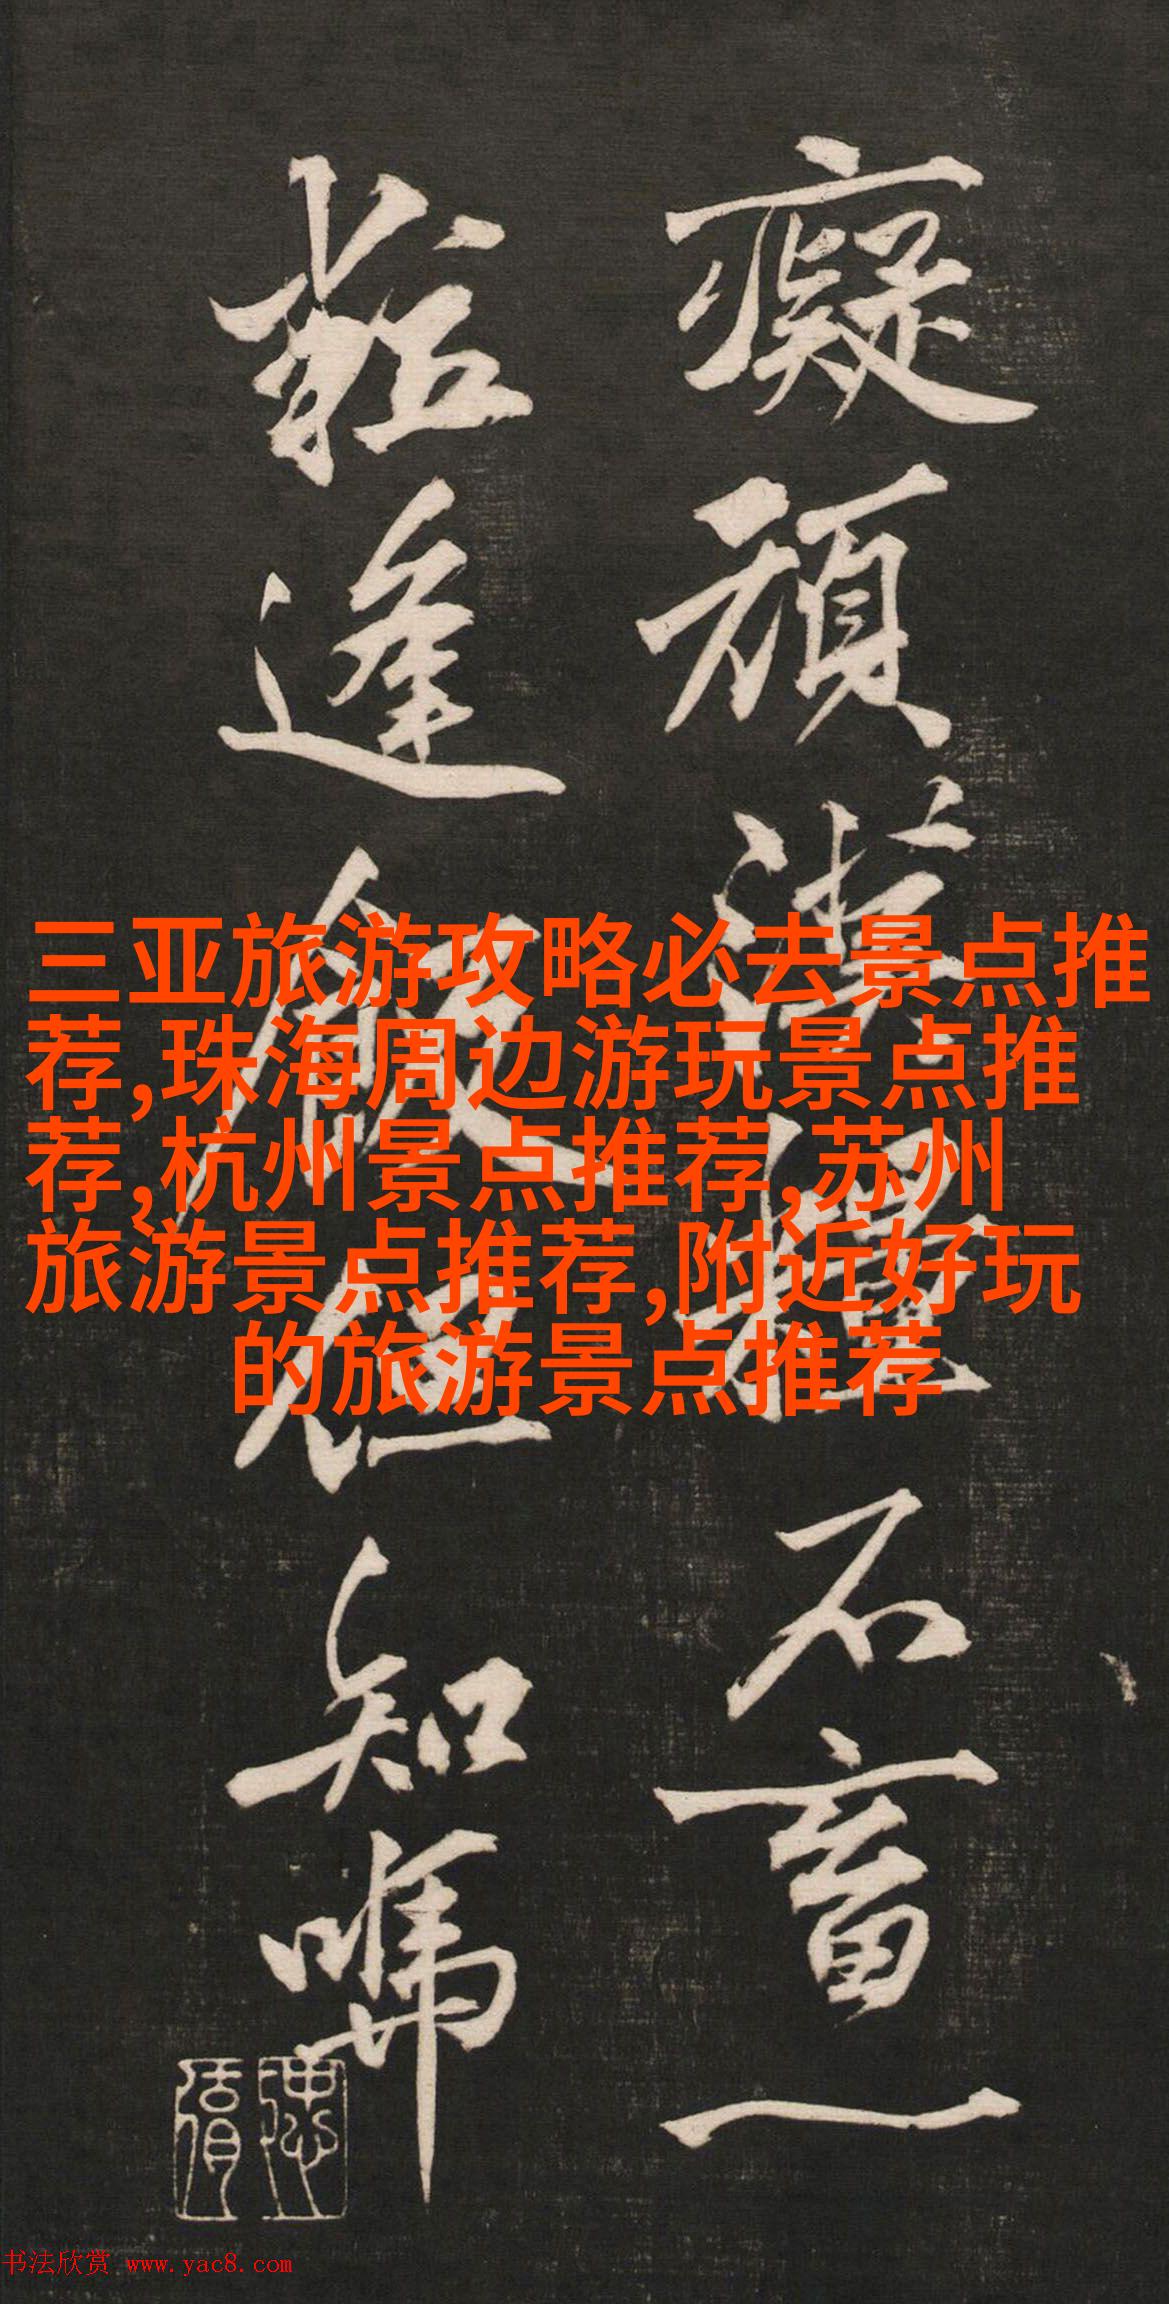 癡頑漢不畜一
粒逢飯但知
三亚旅游攻略必去景点推
荐,珠海周边游玩景点推
荐,杭州景点推荐,苏州
旅游景点推荐,附近好玩
的旅游景点推荐
书法欣赏 www.yac8.com